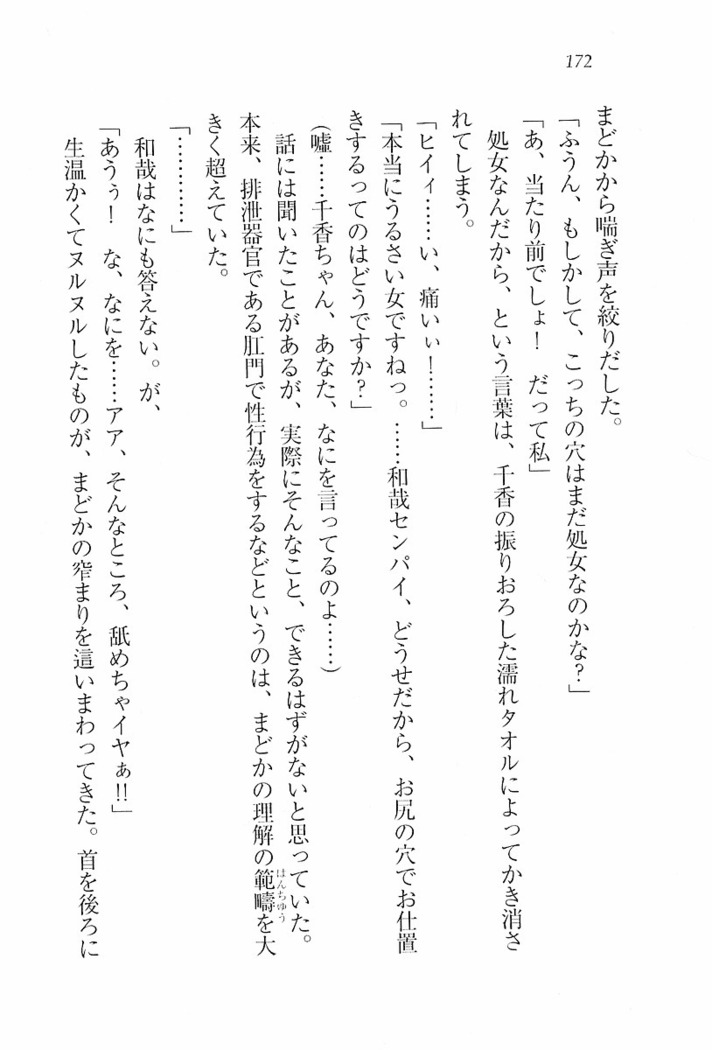 172
まどかから喘ぎ声を絞りだした。
「ふうん、もしかして、こっちの穴はまだ処女なのかな?」
「あ、当たり前でしょ! だって私」
処女なんだから、という言葉は、千香の振りおろした濡れタオルによってかき消さ
れてしまう。
「ヒイィ……い、痛いぃ!……」
「本当にうるさい女ですねっ。……和哉センパイ、どうせだから、お尻の穴でお仕置
きするってのはどうですか?」
(嘘……千香ちゃん、あなた、なにを言ってるのよ……)
話には聞いたことがあるが、実際にそんなこと、できるはずがないと思っていた。
本来、排泄器官である肛門で性行為をするなどというのは、まどかの理解の範疇を大
はんちゅう
きく超えていた。
「…………」
和哉はなにも答えない。が、
「あうぅ! な、なにを……アア、そんなところ、舐めちゃイヤぁ!!」
生温かくてヌルヌルしたものが、まどかの窄まりを這いまわってきた。首を後ろに